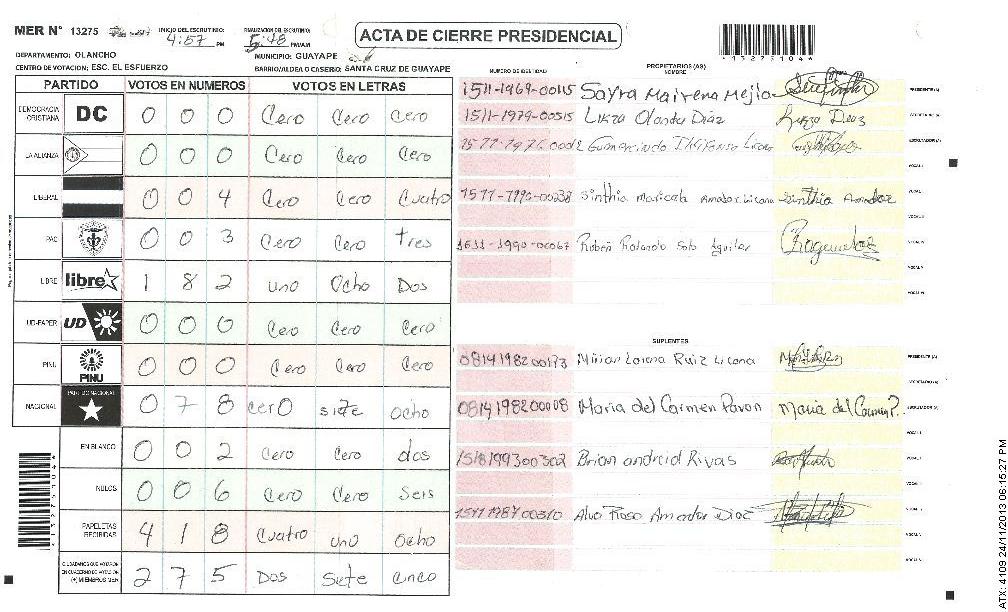 MER N° 13275 INICIO DEL ESCRUTINIO: 4:57 PM FINALIZACION DEL ESCRUTINIO: 5:48 PM/AM
ACTA DE CIERRE PRESIDENCIAL
*13275104*
DEPARTAMENTO: OLANCHO MUNICIPIO: GUAYAPE
CENTRO DE VOTACION: ESC. EL ESFUERZO BARRIO/ALDEA O CASERIO: SANTA CRUZ DE GUAYAPE
PARTIDO VOTOS EN NUMEROS VOTOS EN LETRAS
DEMOCRACIA CRISTIANA DC 0 0 0 Cero Cero Cero
LA ALIANZA 0 0 0 Cero Cero Cero
LIBERAL 0 0 4 Cero Cero Cuatro
PAC 0 0 3 Cero Cero tres
LIBRE libre 1 8 2 uno Ocho Dos
UD-FAPER UD 0 0 0 Cero Cero Cero
PINU PINU 0 0 0 Cero Cero Cero
NACIONAL PARTIDO NACIONAL 0 7 8 cero siete ocho
EN BLANCO 0 0 2 Cero Cero dos
NULOS 0 0 6 Cero Cero Seis
PAPELETAS RECIBIDAS 4 1 8 Cuatro uno Ocho
CIUDADANOS QUE VOTARON EN CUADERNO DE VOTACION (+) MIEMBROS MER 2 7 5 Dos Siete cinco
PROPIETARIOS (AS)
NUMERO DE IDENTIDAD NOMBRE
1511-1969-00115 Sayra Mairena Mejia PRESIDENTE (A)
1511-1979-00515 Likza Olanda Diaz Likza Diaz SECRETARIO (A)
Gumercindo ESCRUTADOR (A)
VOCAL I
Sinthia Maricela Amador Licona Sinthia Amador VOCAL II
VOCAL III
1511-1990-00067 Ruben Rolando Soto Aguilar VOCAL IV
VOCAL V
VOCAL VI
SUPLENTES
0814198200173 Mirian Lorena Ruiz Licona PRESIDENTE (A)
SECRETARIO (A)
0814198200008 Maria del Carmen Pavon Maria del Carmen P. ESCRUTADOR (A)
VOCAL I
1518199300302 Brian andreid Rivas VOCAL II
VOCAL III
1511198700310 Alva Rosa Amador Diaz VOCAL IV
VOCAL V
VOCAL VI
ATX: 4109 24/11/2013 06:15:27 PM